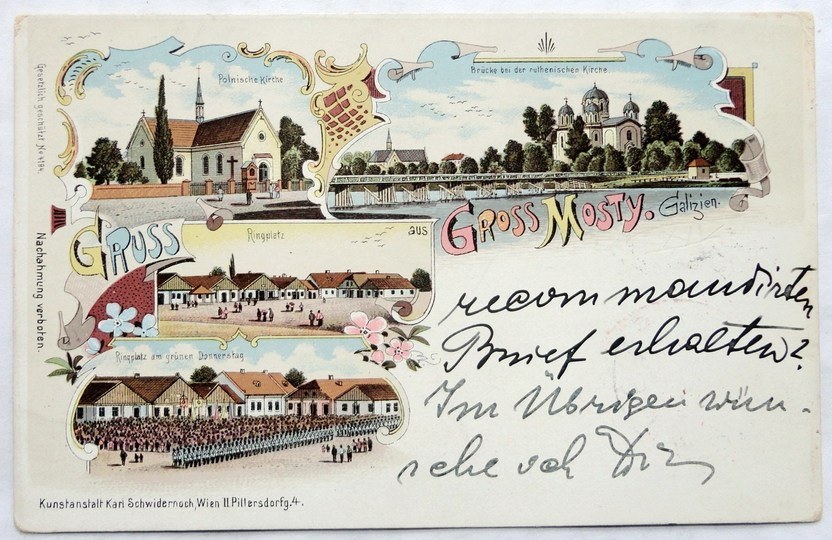 Polnische Kirche
Brücke bei der ruthenischen Kirche.
GRUSS
Ringplatz
aus
GROSS MOSTY. Galizien.
Ringplatz am grünen Donnerstag
recommandirten
Brief erhalten?
Im Übrigen wün-
sche ich Dir
Gesetzlich geschützt No 4194.
Nachahmung verboten.
Kunstanstalt Karl Schwidernoch, Wien II. Pillersdorfg. 4.